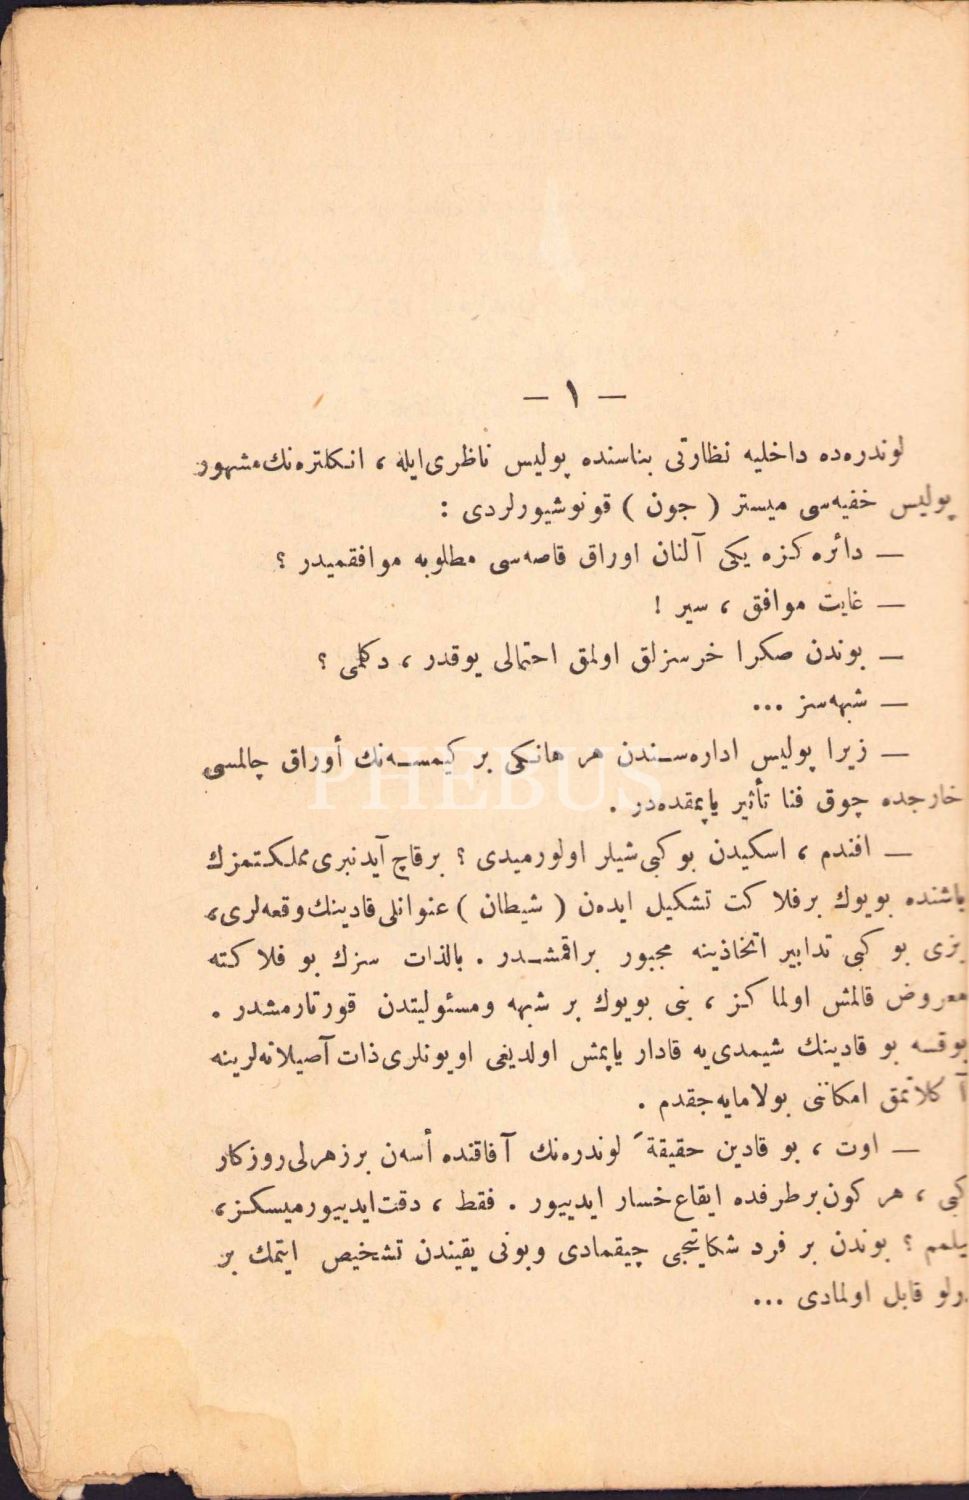 — ١ —
لوندره‌ده داخلیه نظارتی بناسنده پولیس ناظری ایله ، انکلتره‌نك مشهور
پولیس خفیه‌سی میستر ( جون ) قونوشیورلردی :
— دائره کزه یکی آلنان اوراق قاصه‌سی مطلوبه موافقمیدر ؟
— غایت موافق ، سیر !
— بوندن صکرا خرسزلق اولمق احتمالی یوقدر ، دکلمی ؟
— شبهه‌سز ...
— زیرا پولیس اداره‌سندن هر هانکی بر کیمسه‌نك أوراق چالمسی
خارجده چوق فنا تأثیر یاپمقده‌در .
— افندم ، اسکیدن بو کبی شیلر اولورمیدی ؟ برقاچ آیدنبری مملکتمزك
باشنده بویوك برفلاکت تشکیل ایده‌ن ( شیطان ) عنوانلی قادینك وقعه‌لری،
بزی بو کبی تدابیر اتخاذینه مجبور براقمشدر . بالذات سزك بو فلاکته
معروض قالمش اولماکز ، بنی بویوك بر شبهه ومسئولیتدن قورتارمشدر .
یوقسه بو قادینك شیمدی‌یه قادار یاپمش اولدیغی اویونلری ذات آصیلانه‌لرینه
آکلاتمق امکاننی بولامایه‌جقدم .
— اوت ، بو قادین حقیقةً لوندره‌نك آفاقنده أسه‌ن برزهرلی روزکار
کبی ، هر کون برطرفده ایقاع خسار ایدییور . فقط ، دقت ایدییورمیسکز،
بیلمم ؟ بوندن بر فرد شکایتجی چیقمادی وبونی یقیندن تشخیص ایتمك بر
درلو قابل اولمادی ...
PHEBUS